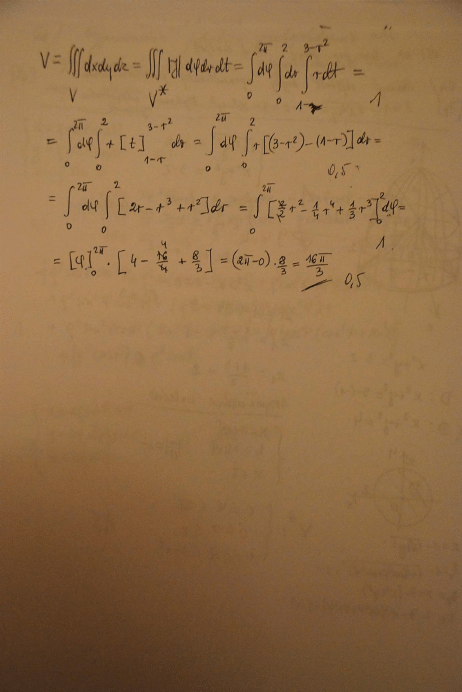 V = ∭_V dxdydz = ∭_V* |J| dφ dr dt = ∫_0^{2π} dφ ∫_0^2 dr ∫_{1-r}^{3-r²} r dt = 1
= ∫_0^{2π} dφ ∫_0^2 r [t]_{1-r}^{3-r²} dr = ∫_0^{2π} dφ ∫_0^2 r[(3-r²)-(1-r)] dr =
0,5
= ∫_0^{2π} dφ ∫_0^2 [2r - r³ + r²] dr = ∫_0^{2π} [2/2 r² - 1/4 r⁴ + 1/3 r³]_0^2 dφ =
1.
= [φ]_0^{2π} · [4 - 16/4 + 8/3] = (2π-0) · 8/3 = 16π/3 0,5